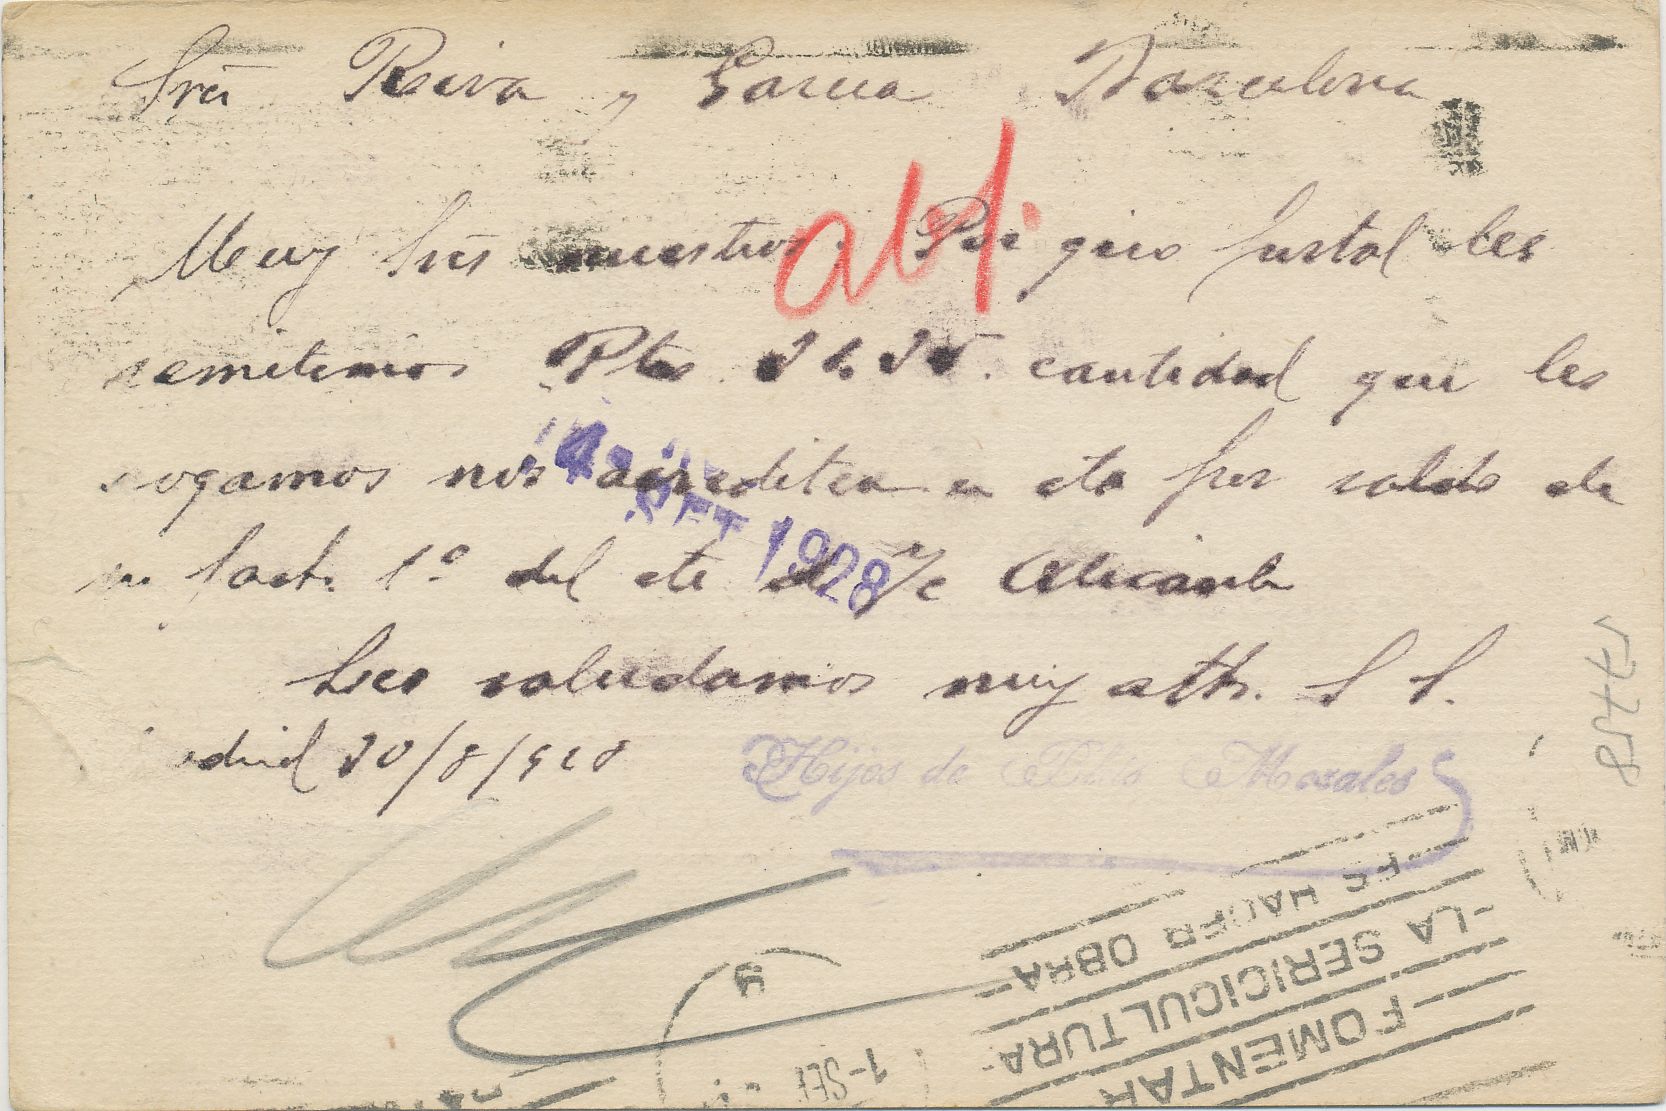 Sres Riva y Garcia Barcelona
Muy Sres nuestros. Por giro postal les
remitimos Ptas cantidad que les
rogamos nos acrediten en cta por saldo de
su fact. 1º del cte Alicante
Les saludamos muy atte. S S.
Madrid 30/8/928
Hijos de Morales
SET 1928
FOMENTAR
LA SERICICULTURA
ES HACER OBRA
1-SET